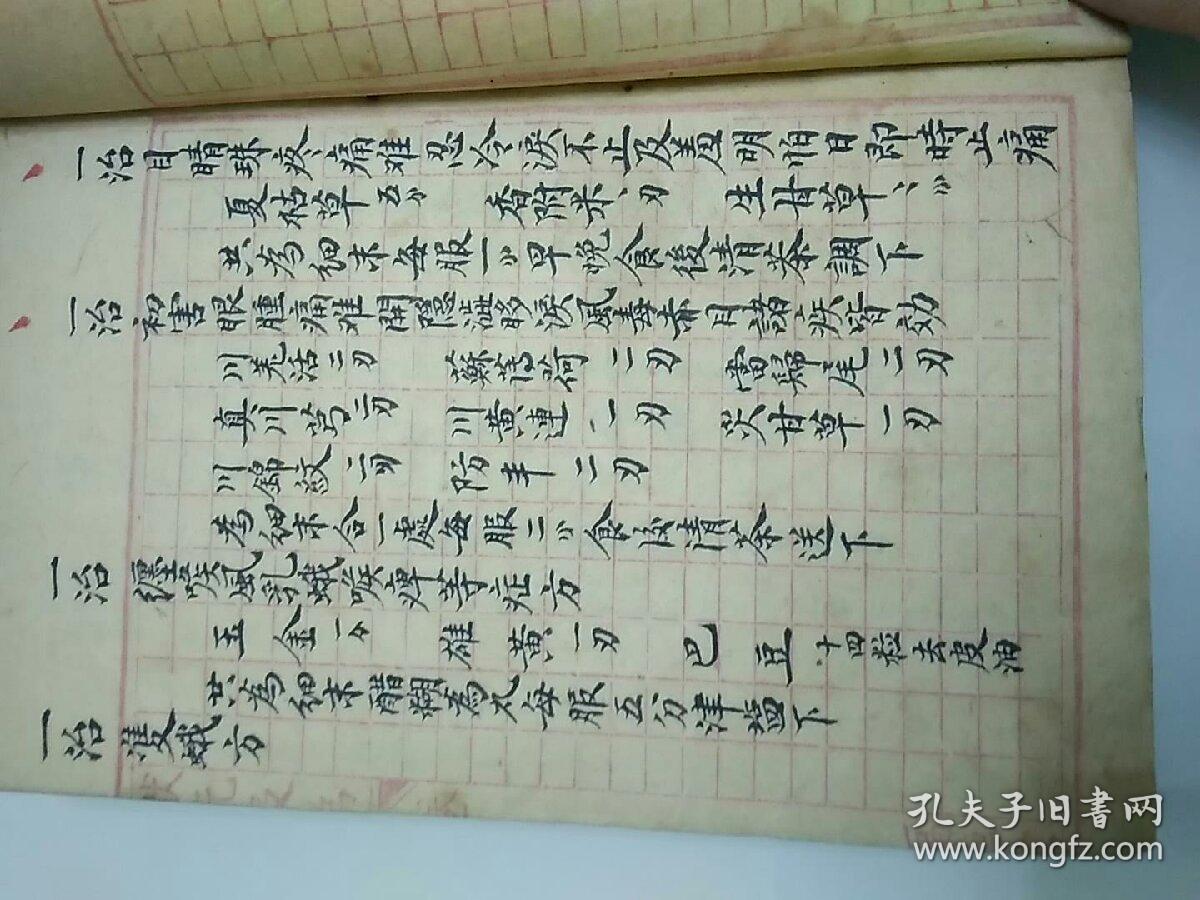 一治目睛珠疼痛难忍冷淚不止及羞明怕日即時止痛
夏枯草五 香附米 刃 生甘草
共為細末每服一 早晚食後清茶調下
一治初害眼腫痛难開隱澀眵淚風毒赤目諸疾皆効
川羌活二刃 蘇薄荷二刃 當歸尾二刃
真川芎二刃 川黄連一刃 炙甘草一刃
川錦紋二刃 防丰二刃
為細末合一處每服二 食後清茶送下
一治纏喉風乳蛾喉痺等症方
玉金一 雄黄一刃 巴豆十四粒去皮油
共為細末醋糊為丸每服五分津嚥下
一治雙蛾方
孔夫子旧书网
www.kongfz.com